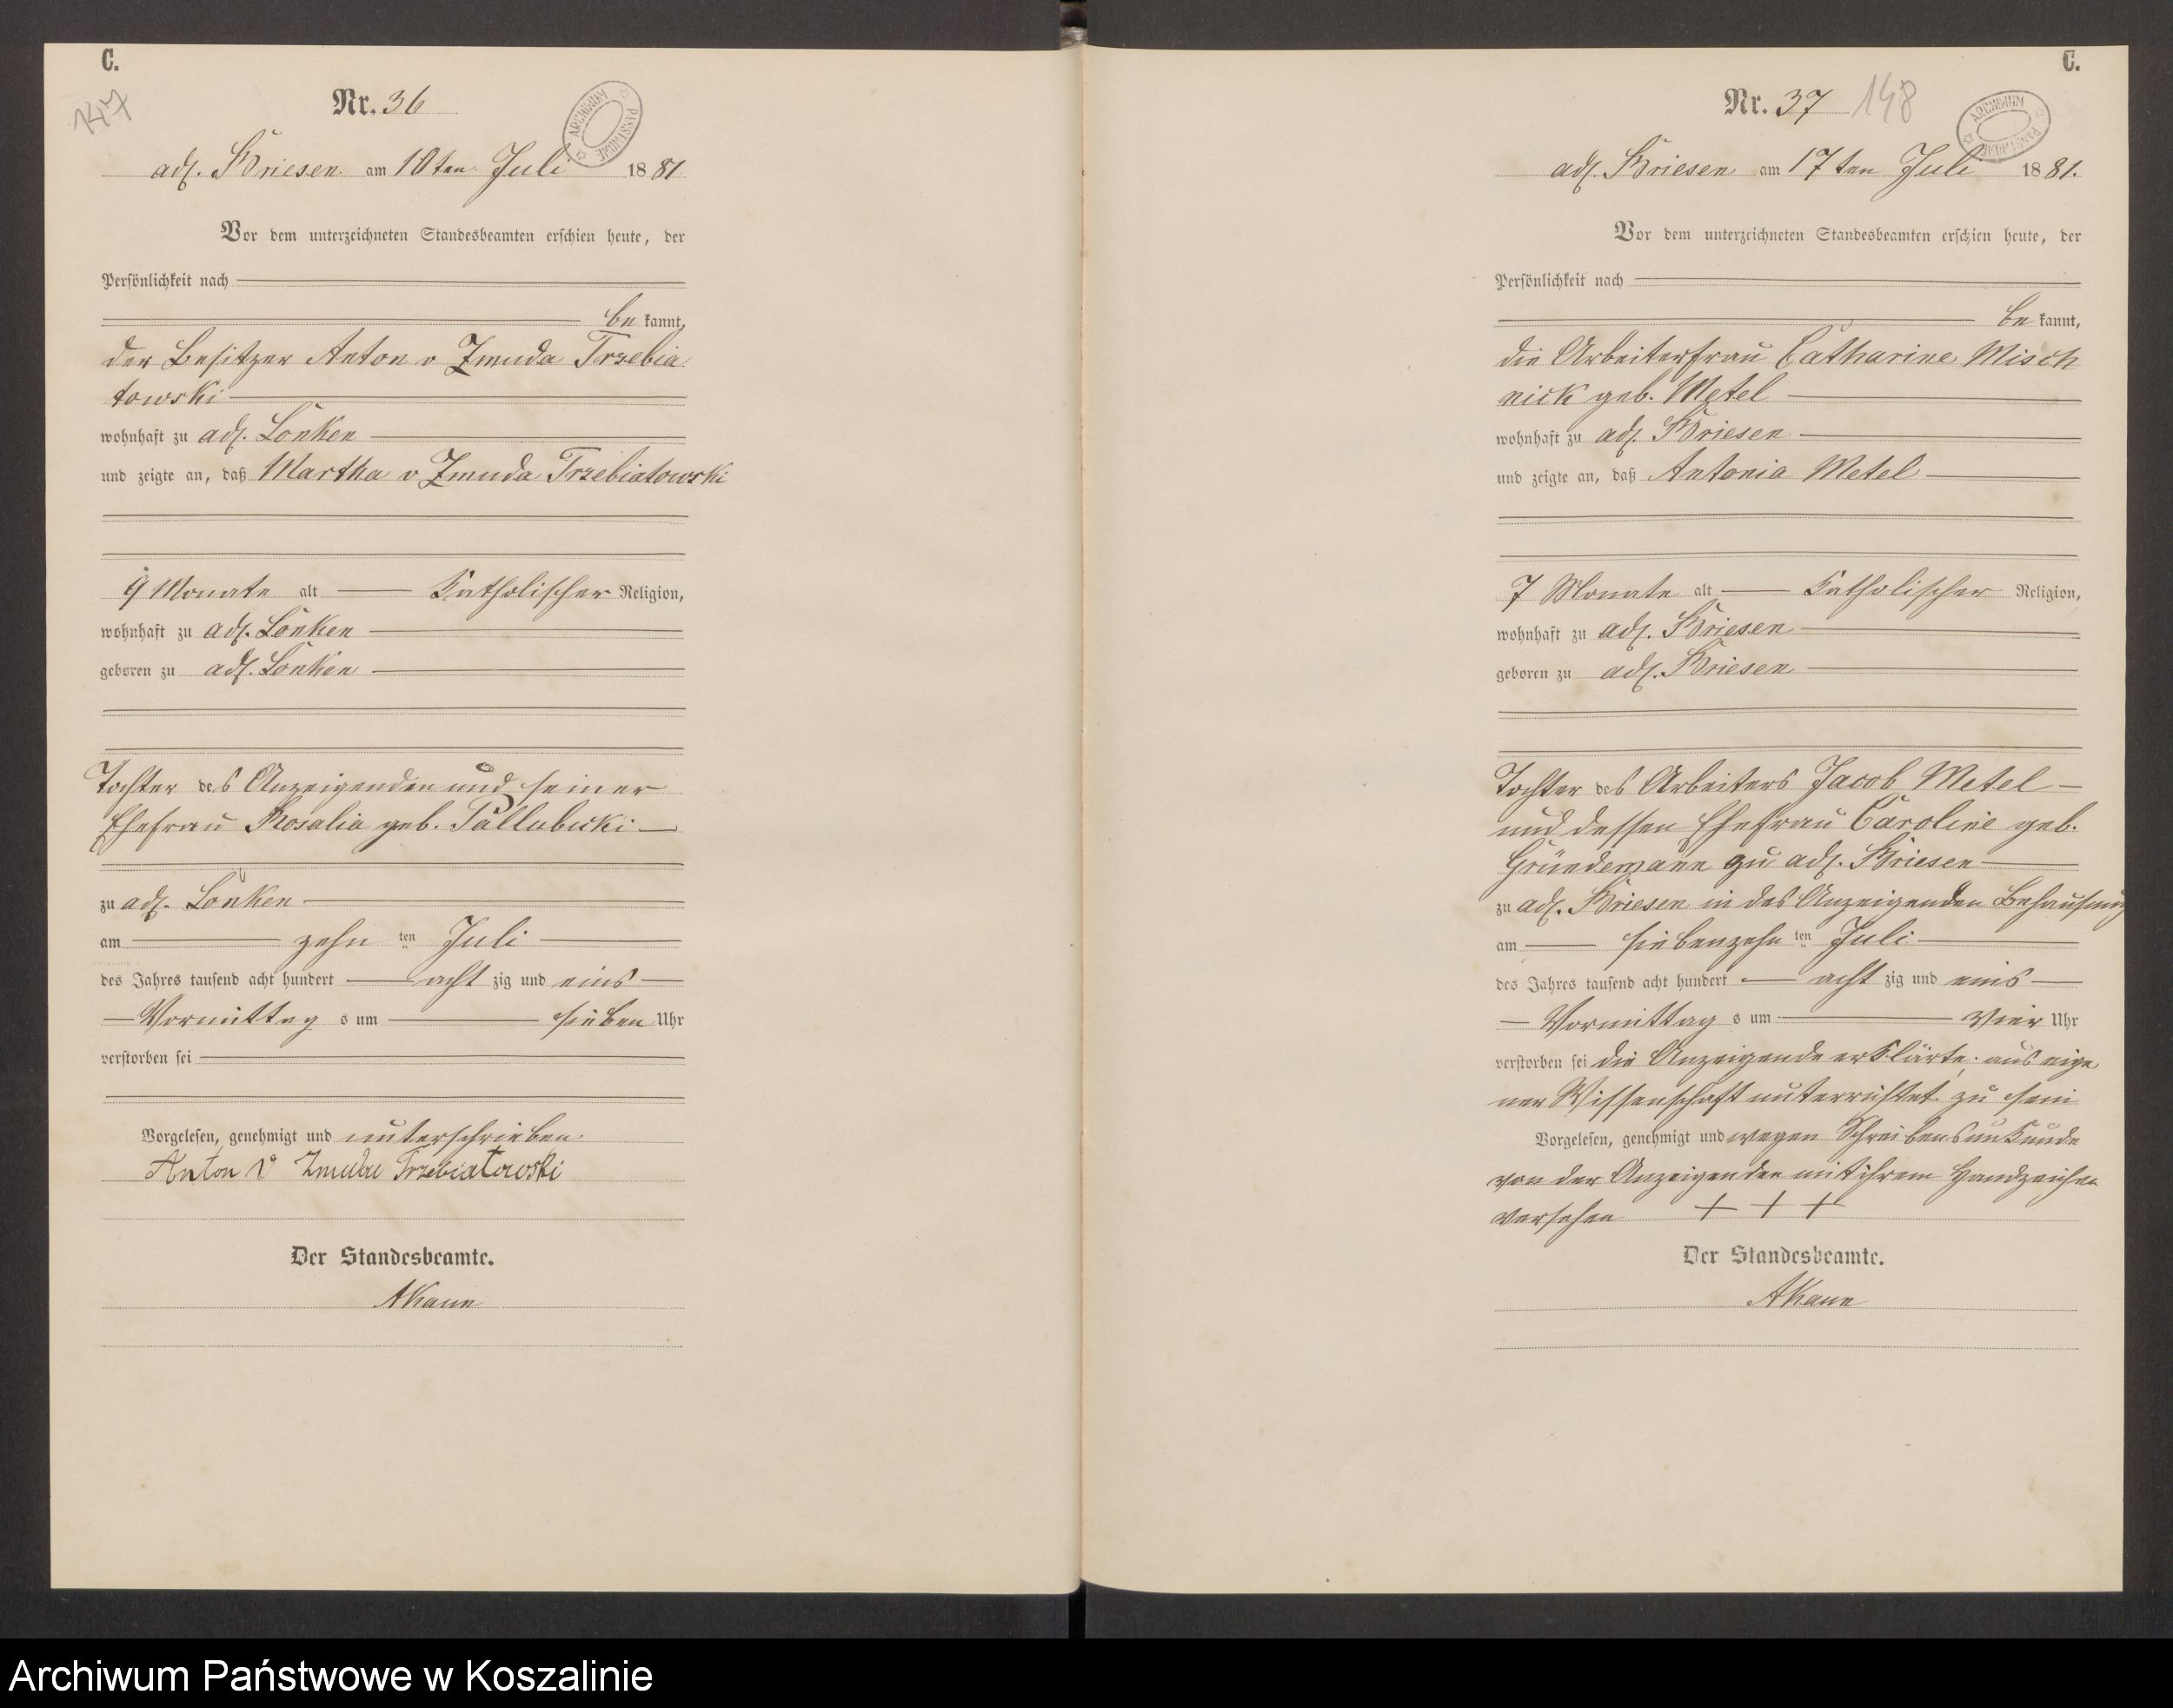 C.
147
Nr. 36
ARCHIWUM PAŃSTWOWE
adl. Briesen am 10ten Juli 1881
Vor dem unterzeichneten Standesbeamten erschien heute, der
Persönlichkeit nach
be kannt,
der Besitzer Anton v Zmuda Trzebia
towski
wohnhaft zu adl. Lonken
und zeigte an, daß Martha v Zmuda Trzebiatowski
9 Monate alt Katholischer Religion,
wohnhaft zu adl. Lonken
geboren zu adl. Lonken
Tochter des Anzeigenden und seiner
Ehefrau Rosalia geb. Pallubicki
zu adl. Lonken
am zehn ten Juli
des Jahres tausend acht hundert acht zig und eins
Vormittag s um sieben Uhr
verstorben sei
Vorgelesen, genehmigt und unterschrieben
Anton v Zmuda Trzebiatowski
Der Standesbeamte.
AKann
C.
Nr. 37 148
ARCHIWUM PAŃSTWOWE
adl. Briesen am 17ten Juli 1881.
Vor dem unterzeichneten Standesbeamten erschien heute, der
Persönlichkeit nach
be kannt,
die Arbeiterfrau Catharine Misch
nick geb. Metel
wohnhaft zu adl. Briesen
und zeigte an, daß Antonia Metel
7 Monate alt Katholischer Religion,
wohnhaft zu adl. Briesen
geboren zu adl. Briesen
Tochter des Arbeiters Jacob Metel
und dessen Ehefrau Caroline geb.
Gründemann zu adl. Briesen
zu adl. Briesen in des Anzeigenden Behausung
am siebenzehn ten Juli
des Jahres tausend acht hundert acht zig und eins
Vormittag s um vier Uhr
verstorben sei die Anzeigende erklärte, aus eige
ner Wissenschaft unterrichtet zu sein
Vorgelesen, genehmigt und wegen Schreibensunkunde
von der Anzeigenden mit ihrem Handzeichen
versehen + + +
Der Standesbeamte.
AKann
Archiwum Państwowe w Koszalinie